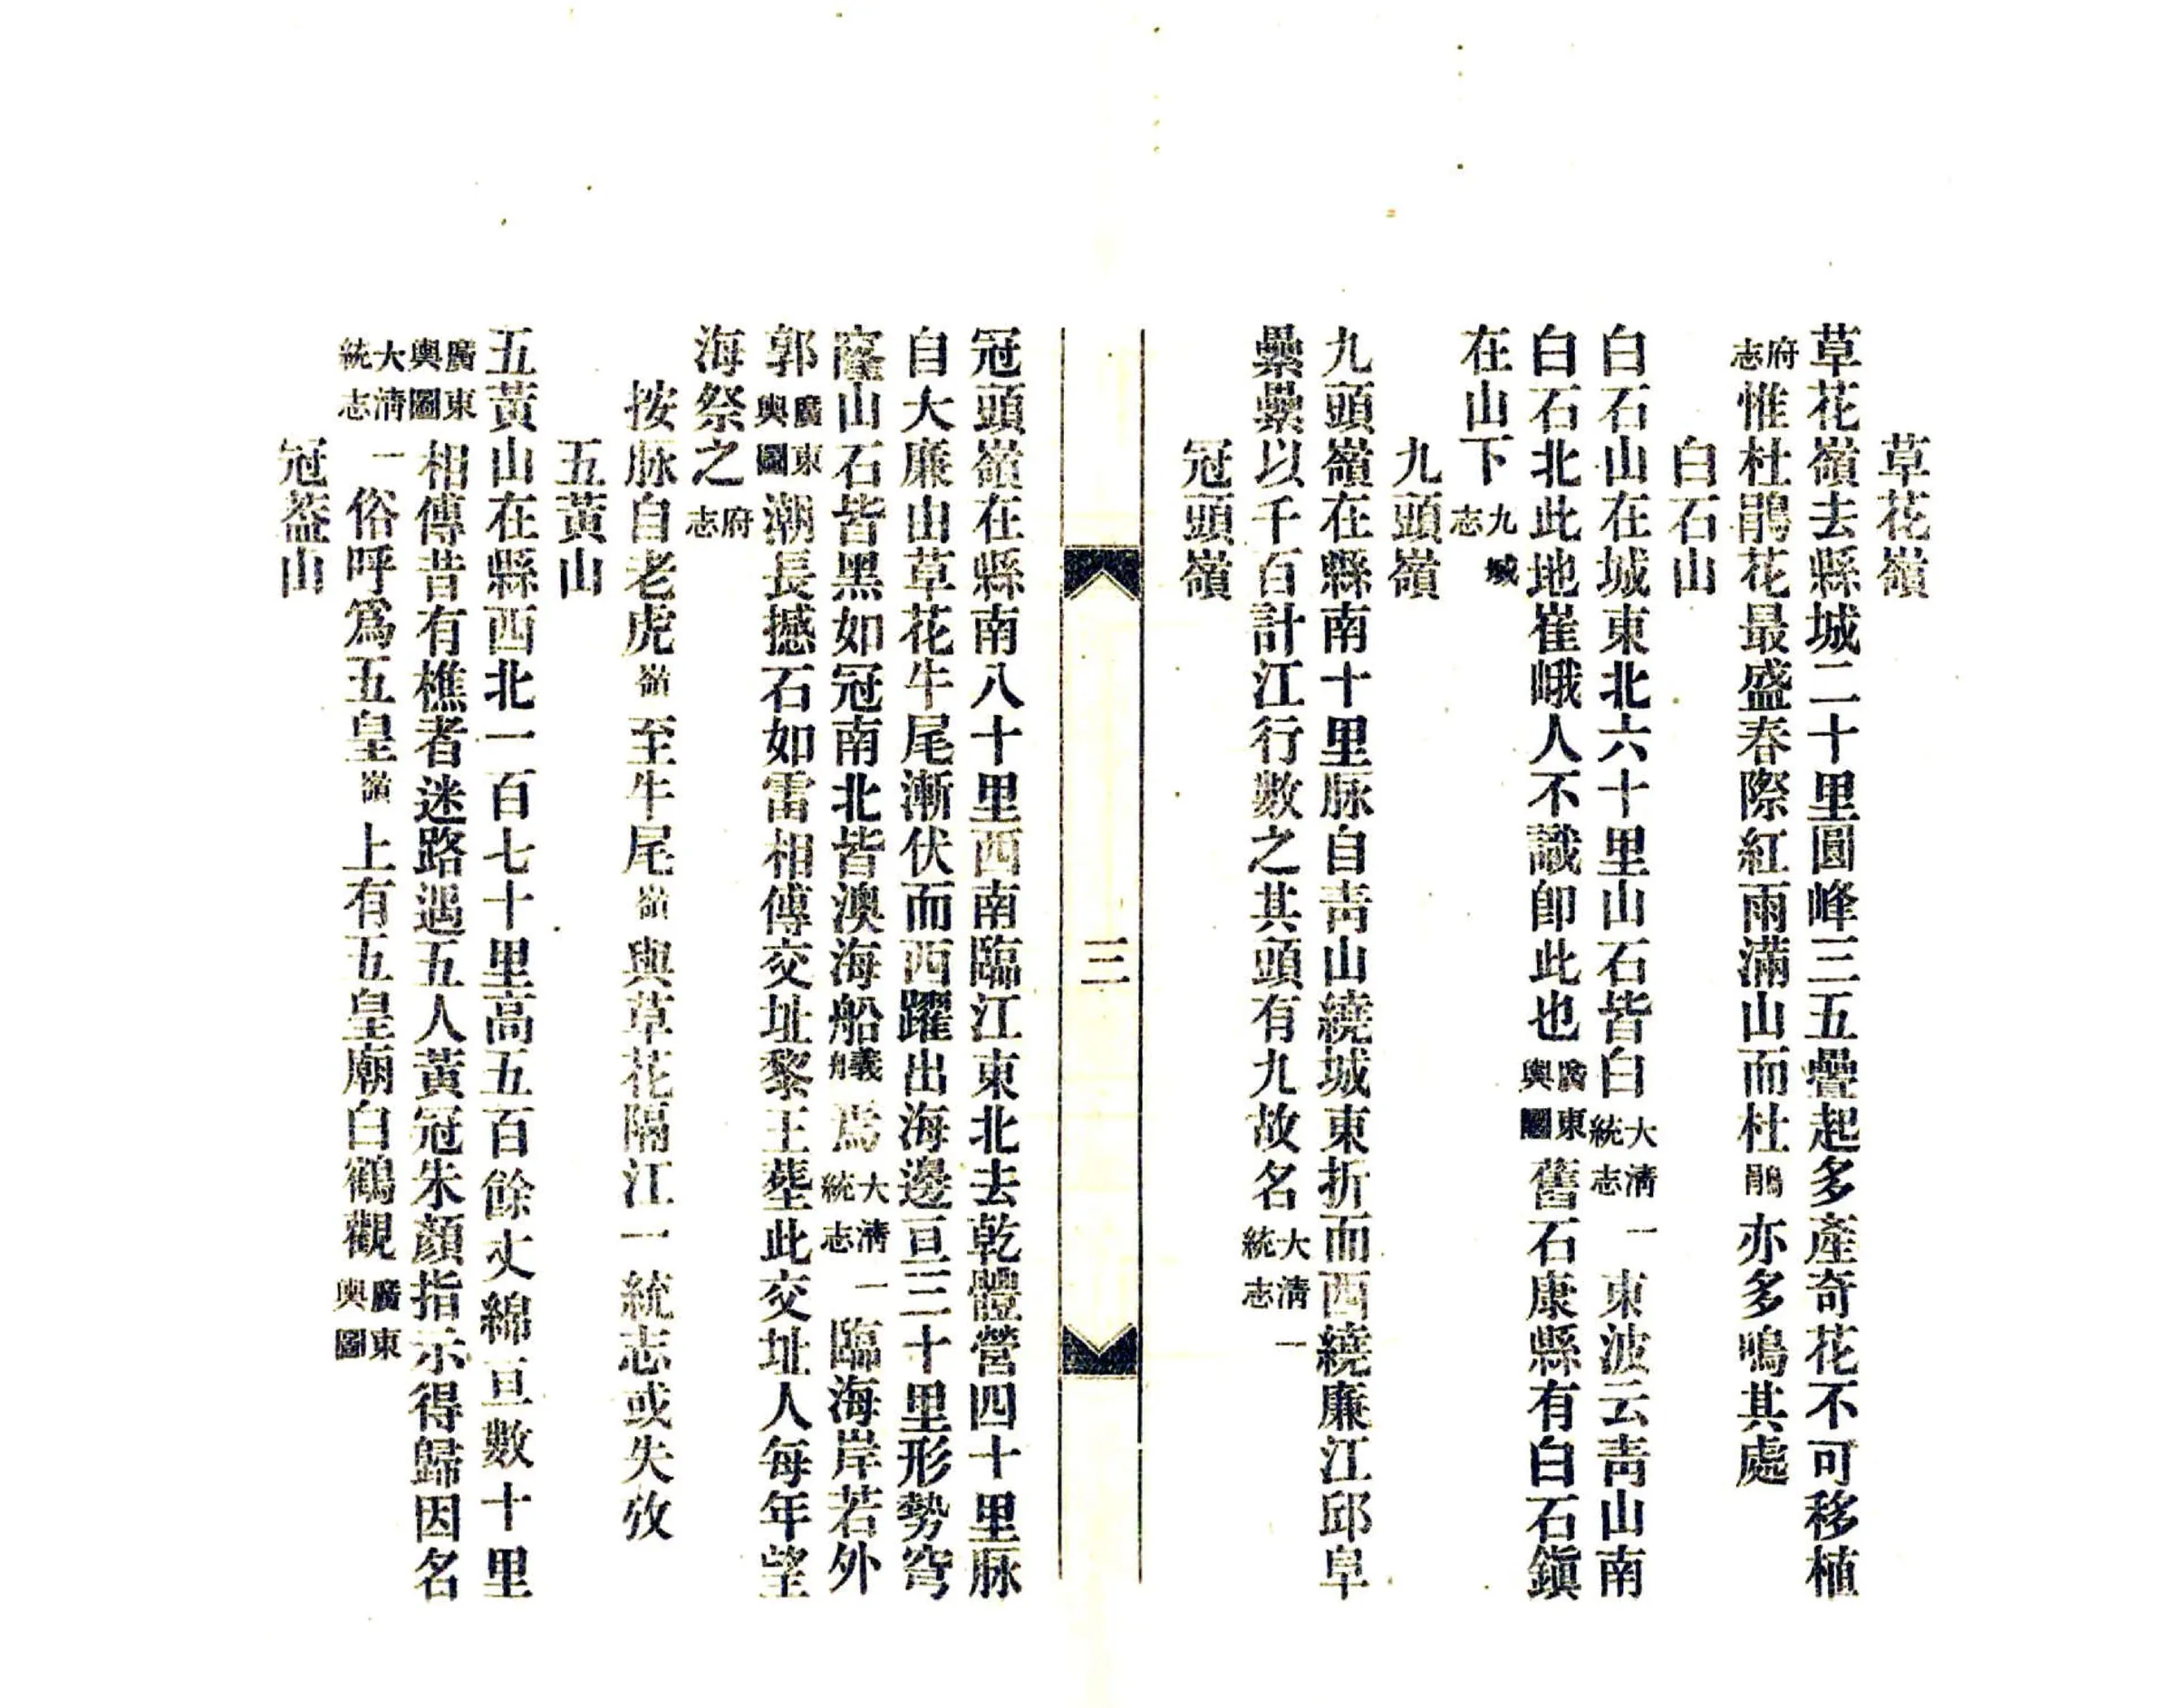 草花嶺
草花嶺去縣城二十里圓峰三五疊起多產奇花不可移植
府志惟杜鵑花最盛春際紅雨滿山而杜鵑亦多鳴其處
白石山
白石山在城東北六十里山石皆白大清一統志東波云青山南
白石北此地崔峨人不識卽此也廣東輿圖舊石康縣有白石鎭
在山下九域志
九頭嶺
九頭嶺在縣南十里脉自靑山繞城東折而西繞廉江邱阜
纍纍以千百計江行數之其頭有九故名大淸一統志
冠頭嶺
三
冠頭嶺在縣南八十里西南臨江東北去乾體營四十里脉
自大廉山草花牛尾漸伏而西躍出海邊亘三十里形勢穹
窿山石皆黑如冠南北皆澳海船艤焉大淸一統志臨海岸若外
郭廣東輿圖潮長撼石如雷相傳交址黎王塟此交址人每年望
海祭之府志
按脉自老虎嶺至牛尾嶺與草花隔江一統志或失攷
五黃山
五黃山在縣西北一百七十里高五百餘丈綿亘數十里
廣東輿圖相傳昔有樵者迷路遇五人黃冠朱顏指示得歸因名
大淸一統志俗呼爲五皇嶺上有五皇廟白鶴觀廣東輿圖
冠葢山